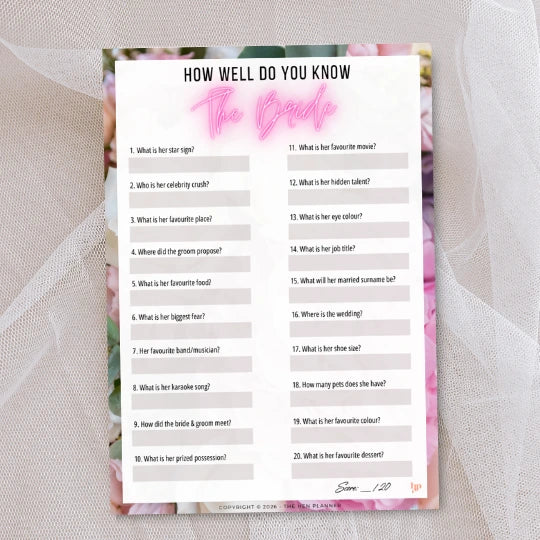 HOW WELL DO YOU KNOW
The Bride
1. What is her star sign?
2. Who is her celebrity crush?
3. What is her favourite place?
4. Where did the groom propose?
5. What is her favourite food?
6. What is her biggest fear?
7. Her favourite band/musician?
8. What is her karaoke song?
9. How did the bride & groom meet?
10. What is her prized possession?
11. What is her favourite movie?
12. What is her hidden talent?
13. What is her eye colour?
14. What is her job title?
15. What will her married surname be?
16. Where is the wedding?
17. What is her shoe size?
18. How many pets does she have?
19. What is her favourite colour?
20. What is her favourite dessert?
Score: __/20
COPYRIGHT © 2026 - THE HEN PLANNER